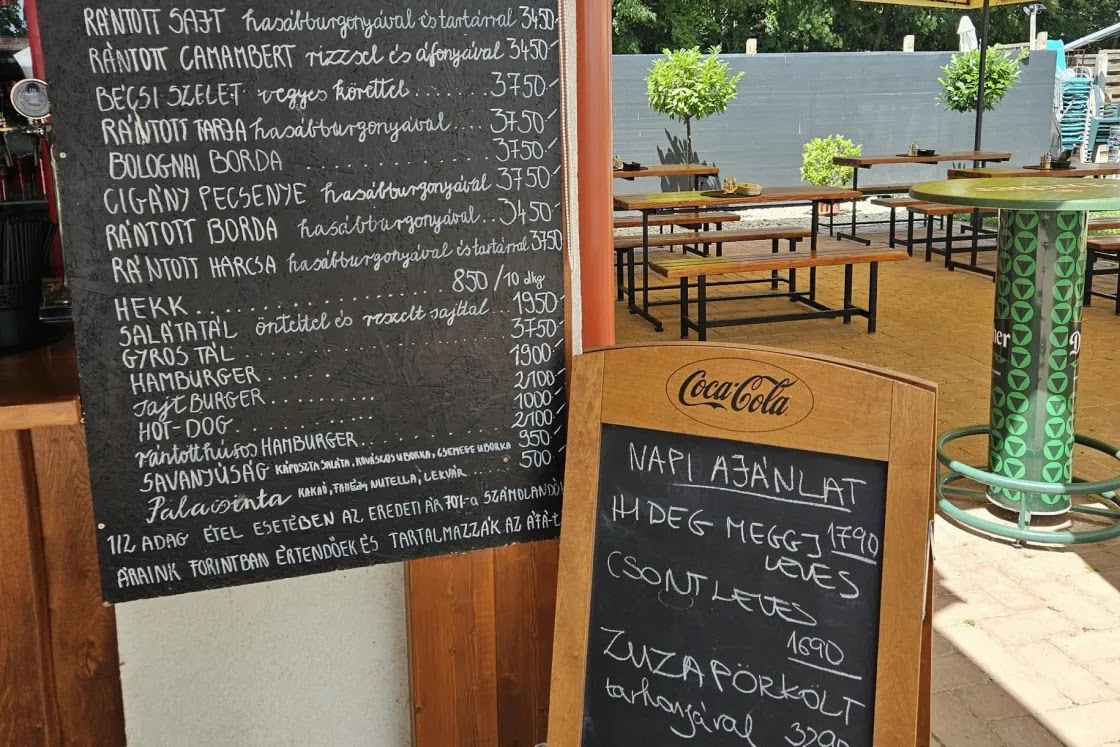 RÁNTOTT SAJT hasábburgonyával és tartárral 3450
RÁNTOTT CAMAMBERT rizzsel és áfonyával 3450
BÉCSI SZELET vegyes körettel.... 3750
RÁNTOTT TARJA hasábburgonyával .... 3750
BOLOGNAI BORDA .................... 3750
CIGÁNY PECSENYE hasábburgonyával 3750
RÁNTOTT BORDA hasábburgonyával.. 3450
RÁNTOTT HARCSA hasábburgonyával és tartárral 3750
HEKK .................... 850/10 dkg
SALÁTATÁL öntettel és reszelt sajttal. 1950
GYROS TÁL .................... 3750
HAMBURGER .................... 1900
SajT BURGER .................... 2100
HOT-DOG .................... 1000
rántotthúsos HAMBURGER .................... 2100
SAVANYÚSÁG KÁPOSZTA SALÁTA, KOVÁSZOS UBORKA, CSEMEGE UBORKA 950
Palacsinta KAKAÓ, FAHÉJ, NUTELLA, LEKVÁR 500
1/2 ADAG ÉTEL ESETÉBEN AZ EREDETI ÁR 70%-a SZÁMOLANDÓ!
ÁRAINK FORINTBAN ÉRTENDŐEK ÉS TARTALMAZZÁK AZ ÁFÁ-t
Coca-Cola
NAPI AJÁNLAT
HIDEG MEGGY 1790
LEVES
CSONTLEVES
1690
ZUZAPÖRKÖLT
tarhonyával 3790